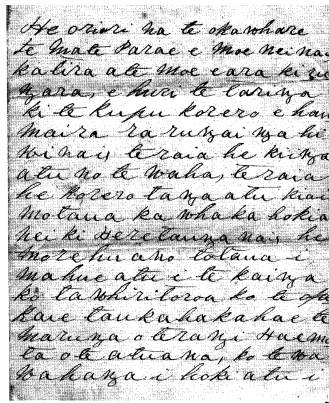 He oriori na te okawhare
te mate Parae e moe nei na
katira ate moe e ara ki
ngara, e huri te taringa
ki te kupu korero e hau
maira ra runga inga hi
winain, teraia he kiinga
atu no te waha, teraia
he korero tanga atu kiai
motaua ka whaka hokia
nei ki Heretaunga nain he
morehu ano totaua i
mahue atu i te kainga
ko tawhiritoroa ko te
kaie taukahakahae te
marunga o terangi Haema
ta ote atuana, ko te
wahanga i hoki atu i